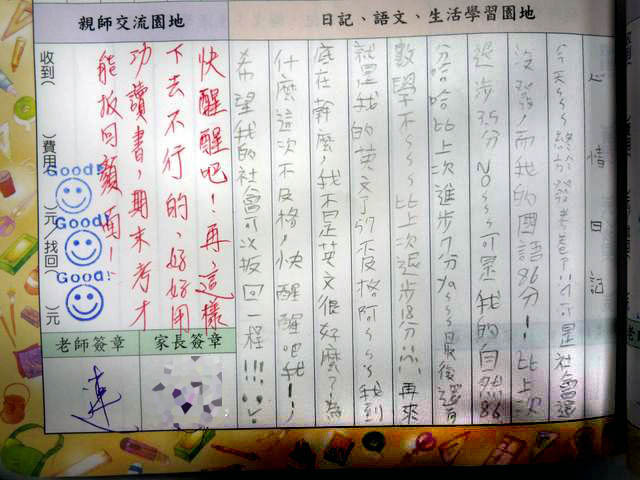 日記、語文、生活學習園地
心情日記
今天~~~終於發考卷了!!可是社會還
沒發,而我的國語86分!!比上次
退步3.5分NO~~~可是我的自然86
分哈哈比上次進步7分ya~~~最後還有
數學不~~~比上次退步18分!!!再來
就是我的英文了57不及格阿~~~我到
底在幹麼,我不是英文很好麼?為
什麼這次不及格,快醒醒吧我!!
希望我的社會可以扳回一程!!!
親師交流園地
快醒醒吧!再這樣
下去不行的,好好用
功讀書,期末考才
能扳回顏面!
收到( )費用( )元/找回( )元
Good!
Good!
Good!
家長簽章
老師簽章
連